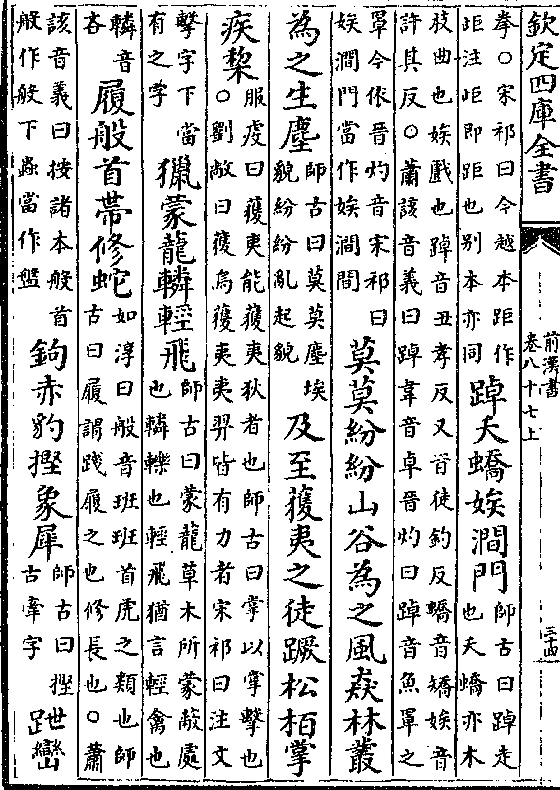 欽定四庫全書
前漢書
卷八十七上
三十四
拳○宋祁曰今越本距作
岠注岠即距也别本亦同
踔夭蟜娭澗門
師古曰踔走
也夭蟜亦木
枝曲也娭戲也踔音丑孝反又音徒釣反蟜音矯娭音
許其反○蕭該音義曰踔韋音卓晉灼曰踔音魚罩之
罩今依晉灼音宋祁曰
娭澗門當作娭澗間
莫莫紛紛山谷為之風猋林叢
為之生塵
師古曰莫莫塵埃
貌紛紛亂起貌
及至獲夷之徒蹶松柏掌
疾棃
服䖍曰獲夷能獲夷狄者也師古曰掌以掌擊也
○劉敞曰獲烏獲夷夷羿皆有力者宋祁曰注文
擊字下當
有之字
獵蒙龍轔輕飛
師古曰蒙龍草木所蒙蔽處
也轔轢也輕飛猶言輕禽也
轔音
吝
履般首帶修蛇
如淳曰般音班班首虎之類也師
古曰履謂踐履之也修長也○蕭
該音義曰按諸本般首
般作般下當作盤
鉤赤豹摼象犀
師古曰摼
古牽字
跇巒